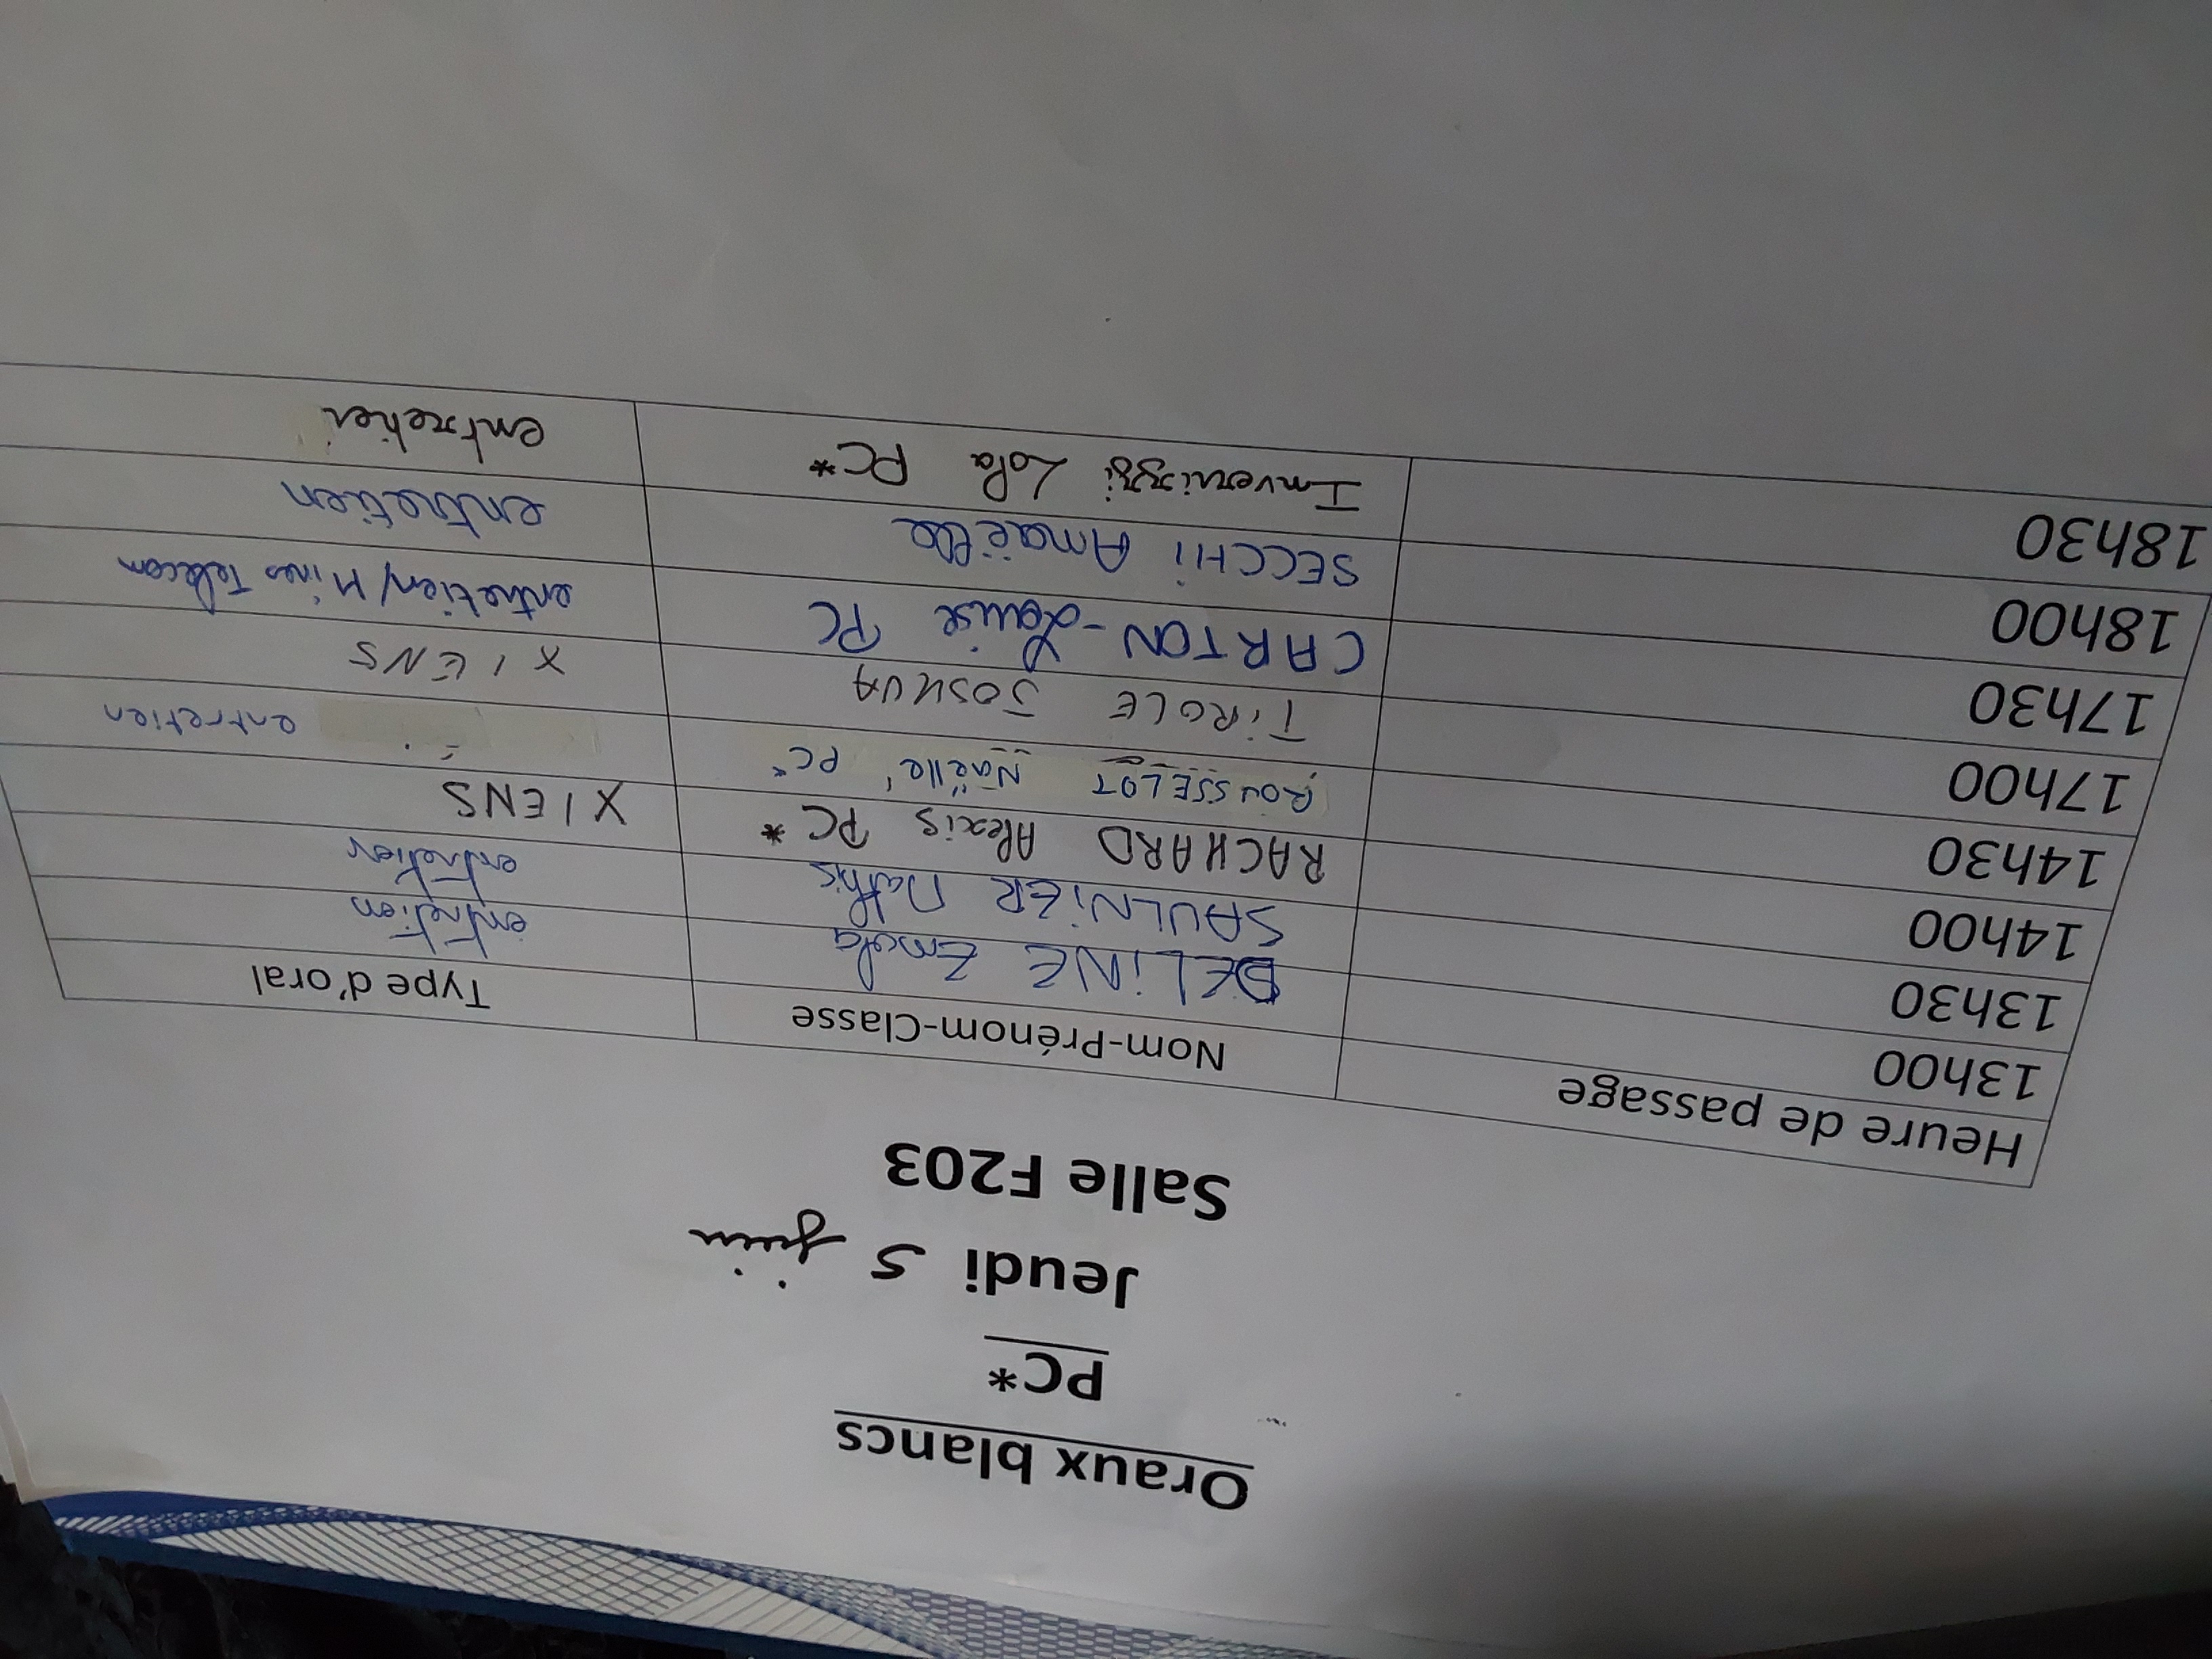 Oraux blancs
PC*
Jeudi 5 juin
Salle F203
Heure de passage Nom-Prénom-Classe Type d'oral
13h00 DELINE Emola entretien
13h30 SAULNIER Mathis entretien
14h00 RACHARD Alexis PC* XIENS
14h30 ROUSSELOT Naëlle PC* entretien
17h00 TiROLE JOSHUA XIENS
17h30 CARTON-Louise PC entretien/Mines Telecom
18h00 SECCHI Amaëlle entretien
18h30 Invernizzi Lola PC* entretien